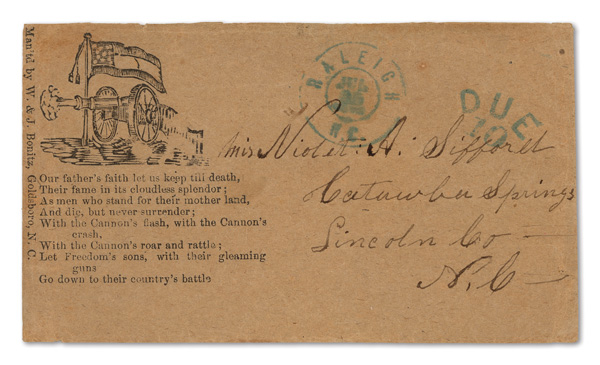 Man'td by W. & J. Bonitz, Goldsboro, N. C.
Our father's faith let us keep till death,
Their fame in its cloudless splendor;
As men who stand for their mother land,
And die, but never surrender;
With the Cannon's flash, with the Cannon's
crash,
With the Cannon's roar and rattle;
Let Freedom's sons, with their gleaming
guns
Go down to their country's battle
RALEIGH
N.C.
DUE
10
Miss Violet A. Sifford
Catawba Springs
Lincoln Co
N.C